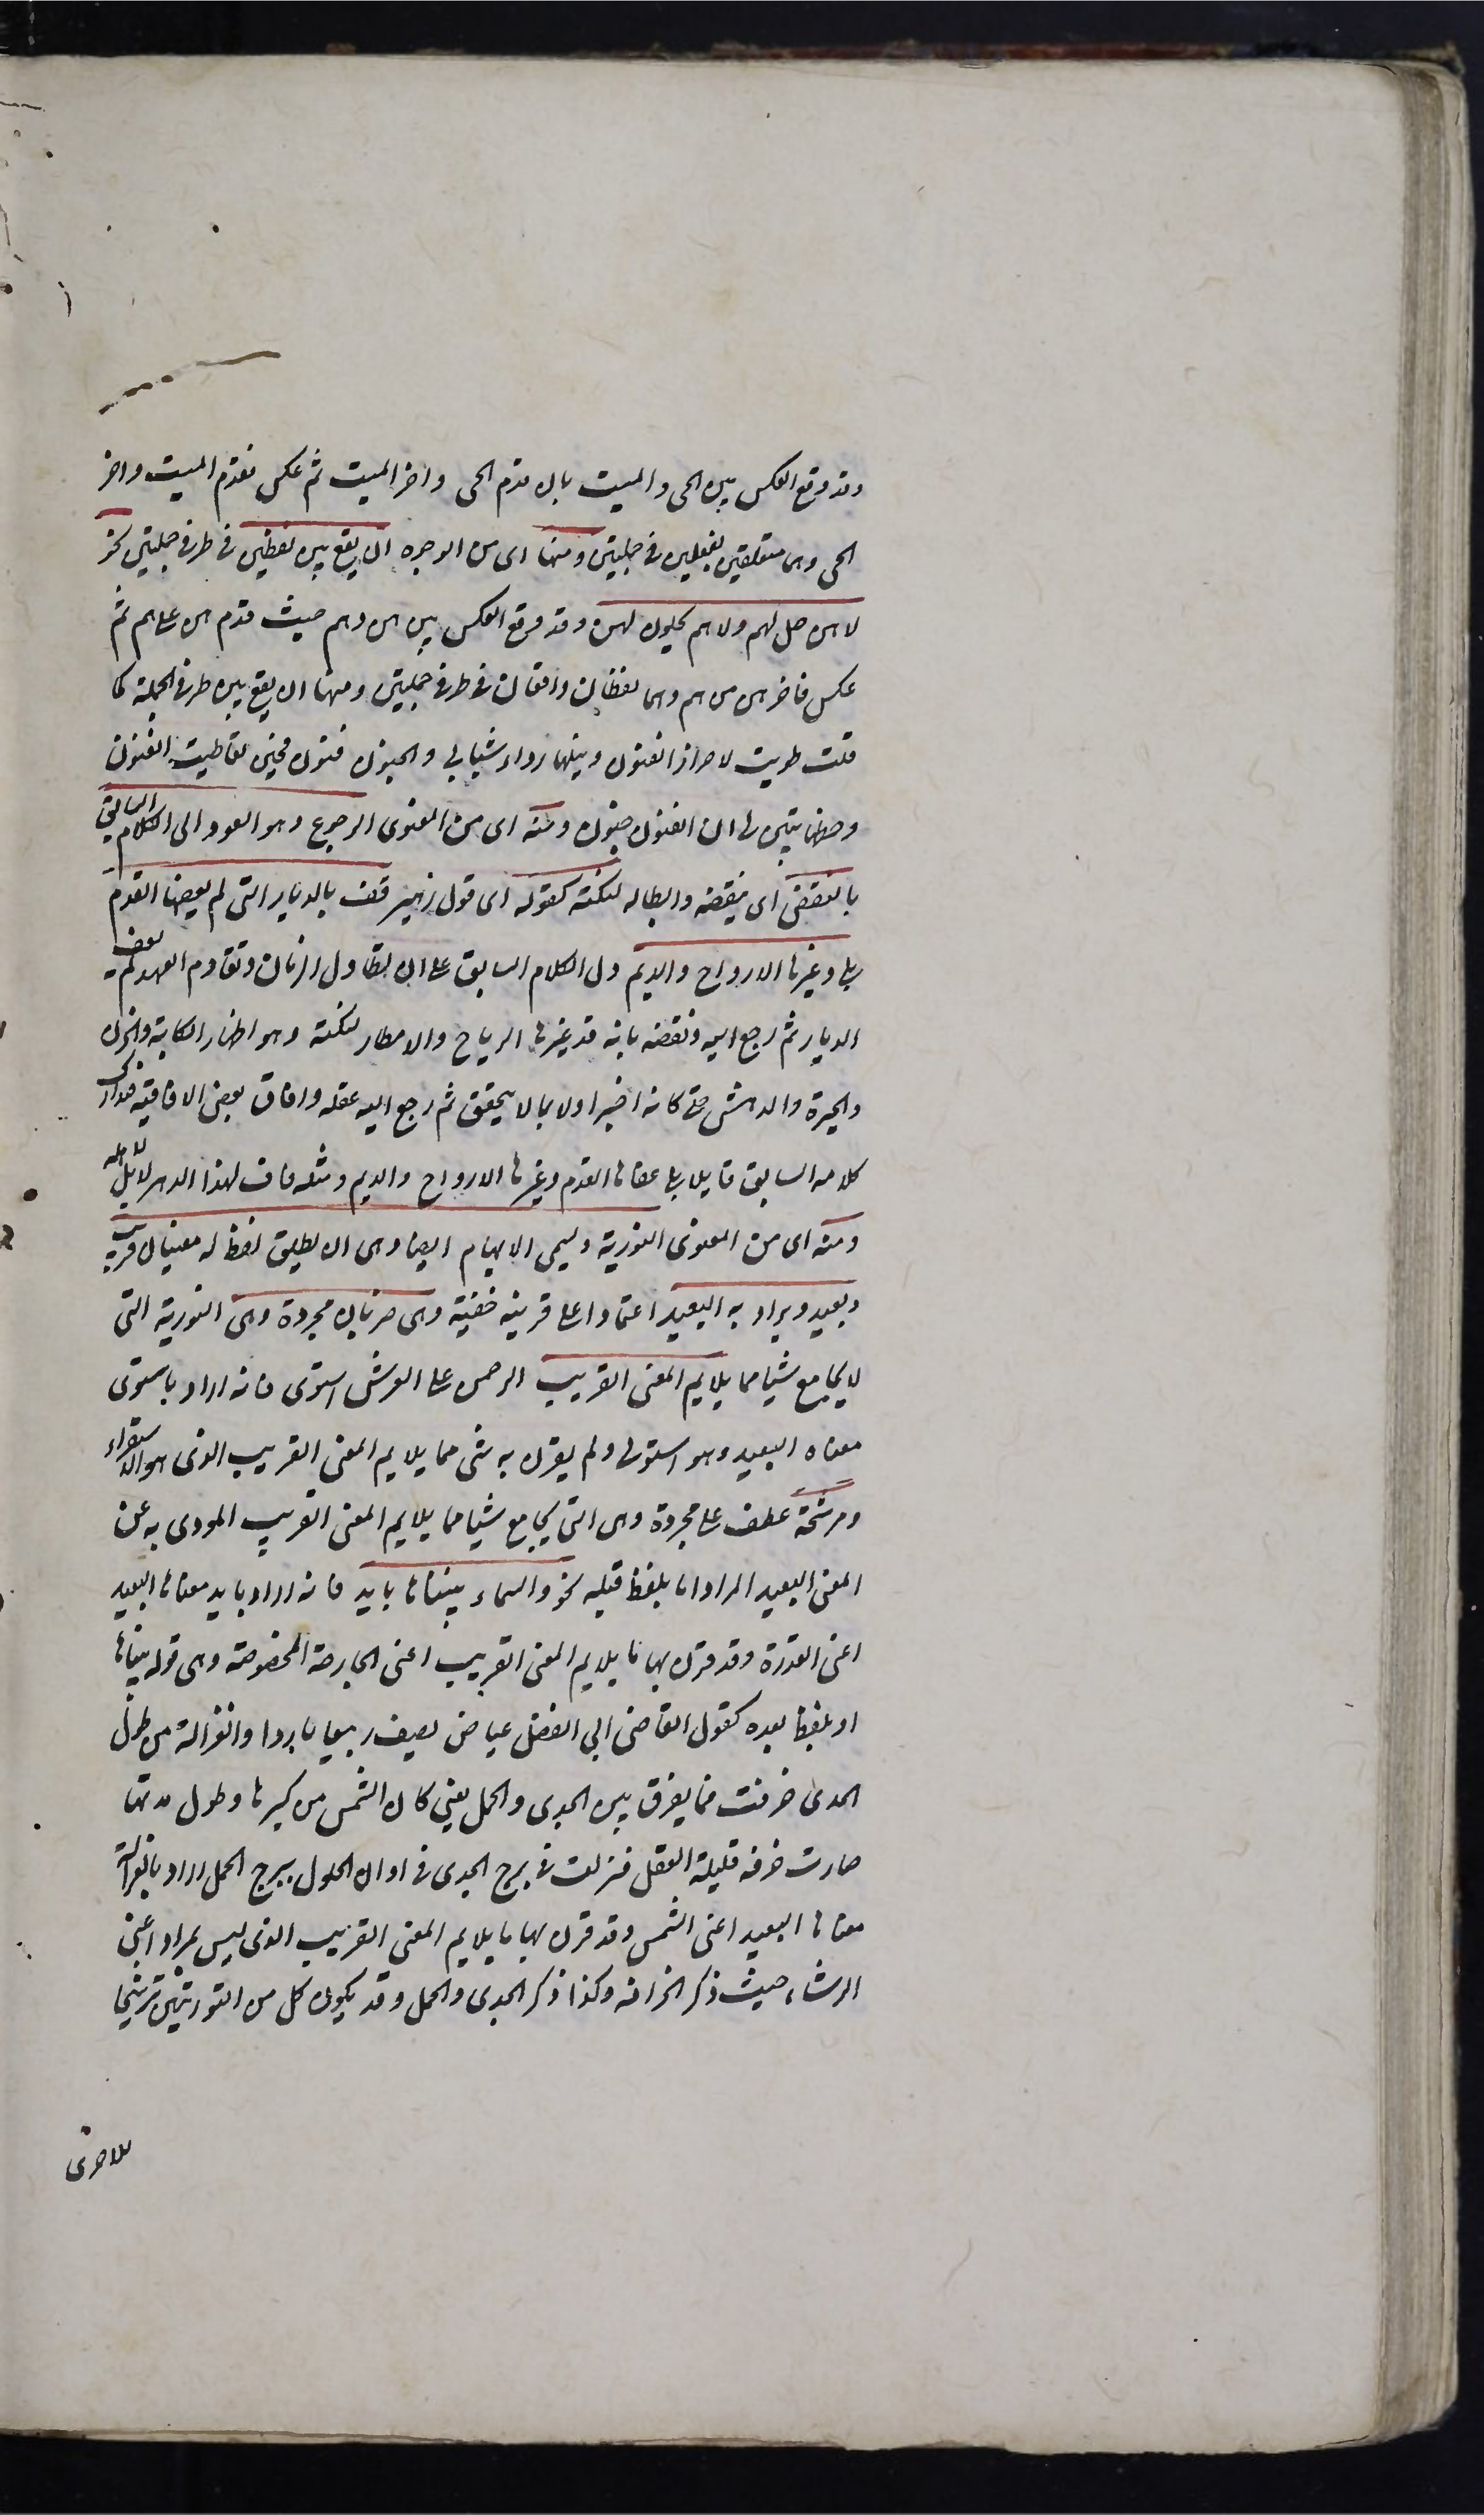 وقد وقع العكس بين الحى والميت بان قدم الحى واخر الميت ثم عكس فقدم الميت واخر
الحى وهما متعلقين بفعلين فى جملتين ومنها اى من الوجوه ان يقع بين لفظين فى طرفى جملتين نحو
لا هن حل لهم ولا هم يحلون لهن وقد وقع العكس بين هن وهم حيث قدم هن على هم ثم
عكس فاخر هن من هم وهما لفظان واقعان فى طرفى جملتين ومنها ان يقع بين طرفى الجملة كما
قلت طويت لاحراز الفنون ونيلها رداء شبابى والجنون فنون فحين تعاطيت الفنون
وحظها تبين لى ان الفنون جنون ومنه اى من المعنوى الرجوع وهو العود الى الكلام السابق
بالنقض اى بنقضه وابطاله لنكتة كقوله اى قول زهير قف بالديار التى لم يعفها القدم
بلى وغيرها الارواح والديم دل الكلام السابق على ان تطاول الزمان وتقادم العهد لم يعف
الديار ثم رجع اليه ونقضه بانه قد غيرها الرياح والامطار لنكتة وهو اظهار الكابة والحزن
والحيرة والدهش حتى كانه اخبر اولا بما لا يتحقق ثم رجع اليه عقله وافاق بعض الافاقة فتدارك
كلامه السابق قايلا بلى عفاها القدم وغيرها الارواح والديم ومثله فاف لهذا الدهر لا بل لاهله
ومنه اى من المعنوى التورية ويسمى الايهام ايضا وهى ان يطلق لفظ له معنيان قريب
وبعيد ويراد به البعيد اعتمادا على قرينة خفية وهى ضربان مجردة وهى التورية التى
لا يجامع شيا مما يلايم المعنى القريب الرحمن على العرش استوى فانه اراد باستوى
معناه البعيد وهو استولى ولم يقرن به شى مما يلايم المعنى القريب الذى هو الاستقرار
ومرشحة عطف على مجردة وهى التى يجامع شيا مما يلايم المعنى القريب المودى به عن
المعنى البعيد المراد اما بلفظ قبله نحو والسماء بنيناها بايد فانه اراد بايد معناها البعيد
اعنى القدرة وقد قرن بها ما يلايم المعنى القريب اعنى الجارحة المخصوصة وهى قوله بنيناها
او بلفظ بعده كقول القاضى ابى الفضل عياض يصف ربيعا باردا والغزالة من طول
المدى خرفت فما يفرق بين الجدى والحمل يعنى كان الشمس من كبرها وطول مدتها
صارت خرفة قليلة العقل فنزلت فى برج الجدى فى اوان الحلول ببرج الحمل اراد بالغزالة
معناها البعيد اعنى الشمس وقد قرن بها ما يلايم المعنى القريب الذى ليس بمراد اعنى
الرشاء حيث ذكر الخرافة وكذا ذكر الجدى والحمل وقد يكون كل من التوريتين ترشيحا
للاخرى